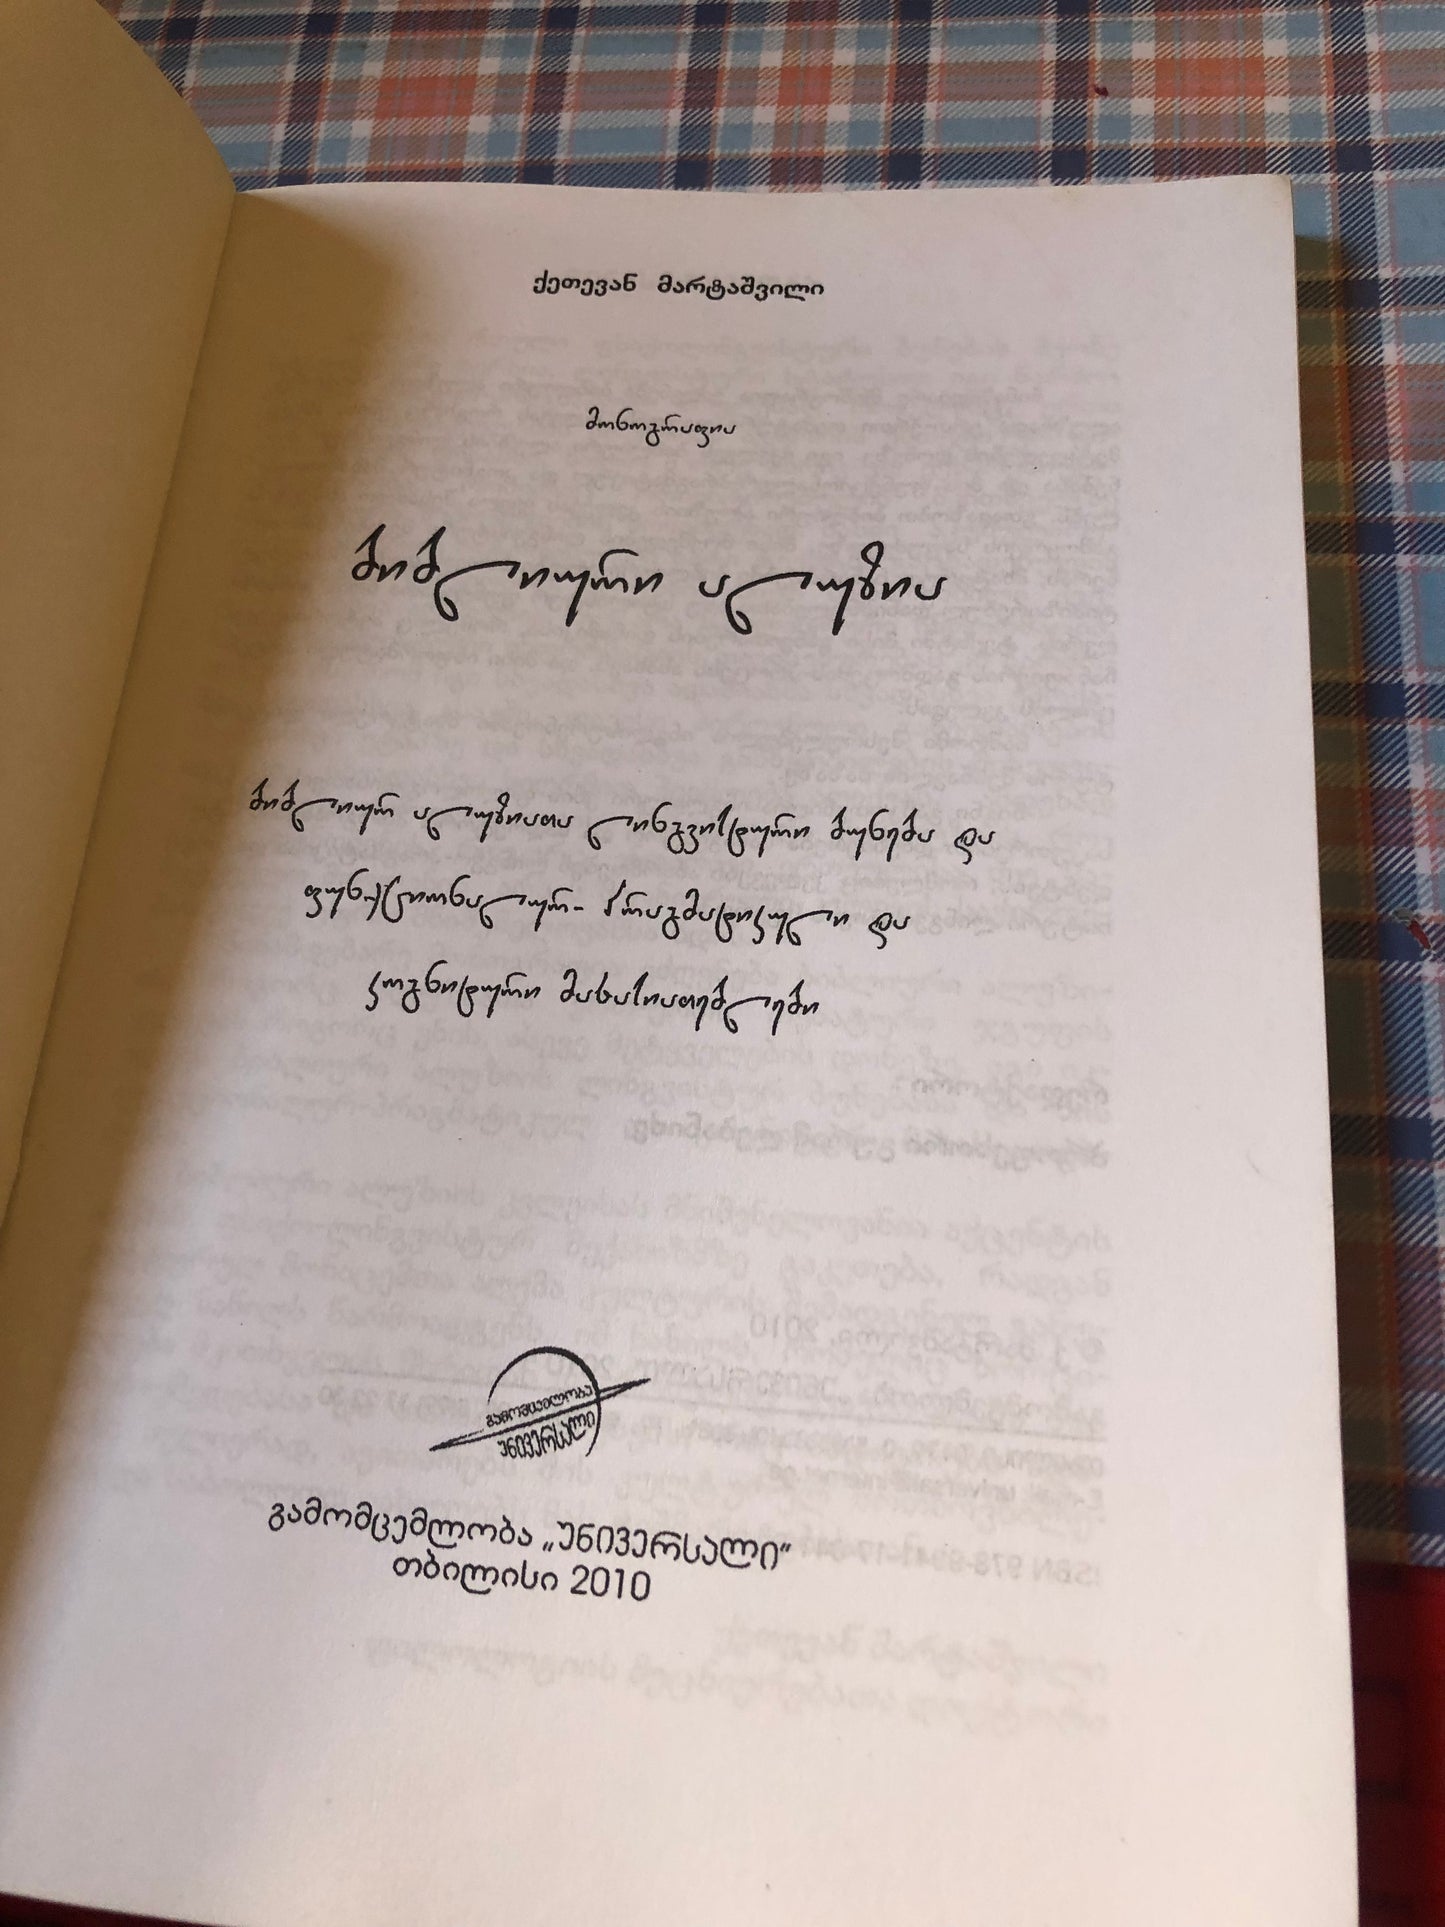 ქეთევან მარტაშვილი
მონოგრაფია
ბიბლიური ალუზია
ბიბლიურ ალუზიათა ლინგვისტური ბუნება და
ფუნქციონალურ- პრაგმატიკული და
კოგნიტური მახასიათებლები
გამომცემლობა
უნივერსალი
გამომცემლობა „უნივერსალი“
თბილისი 2010